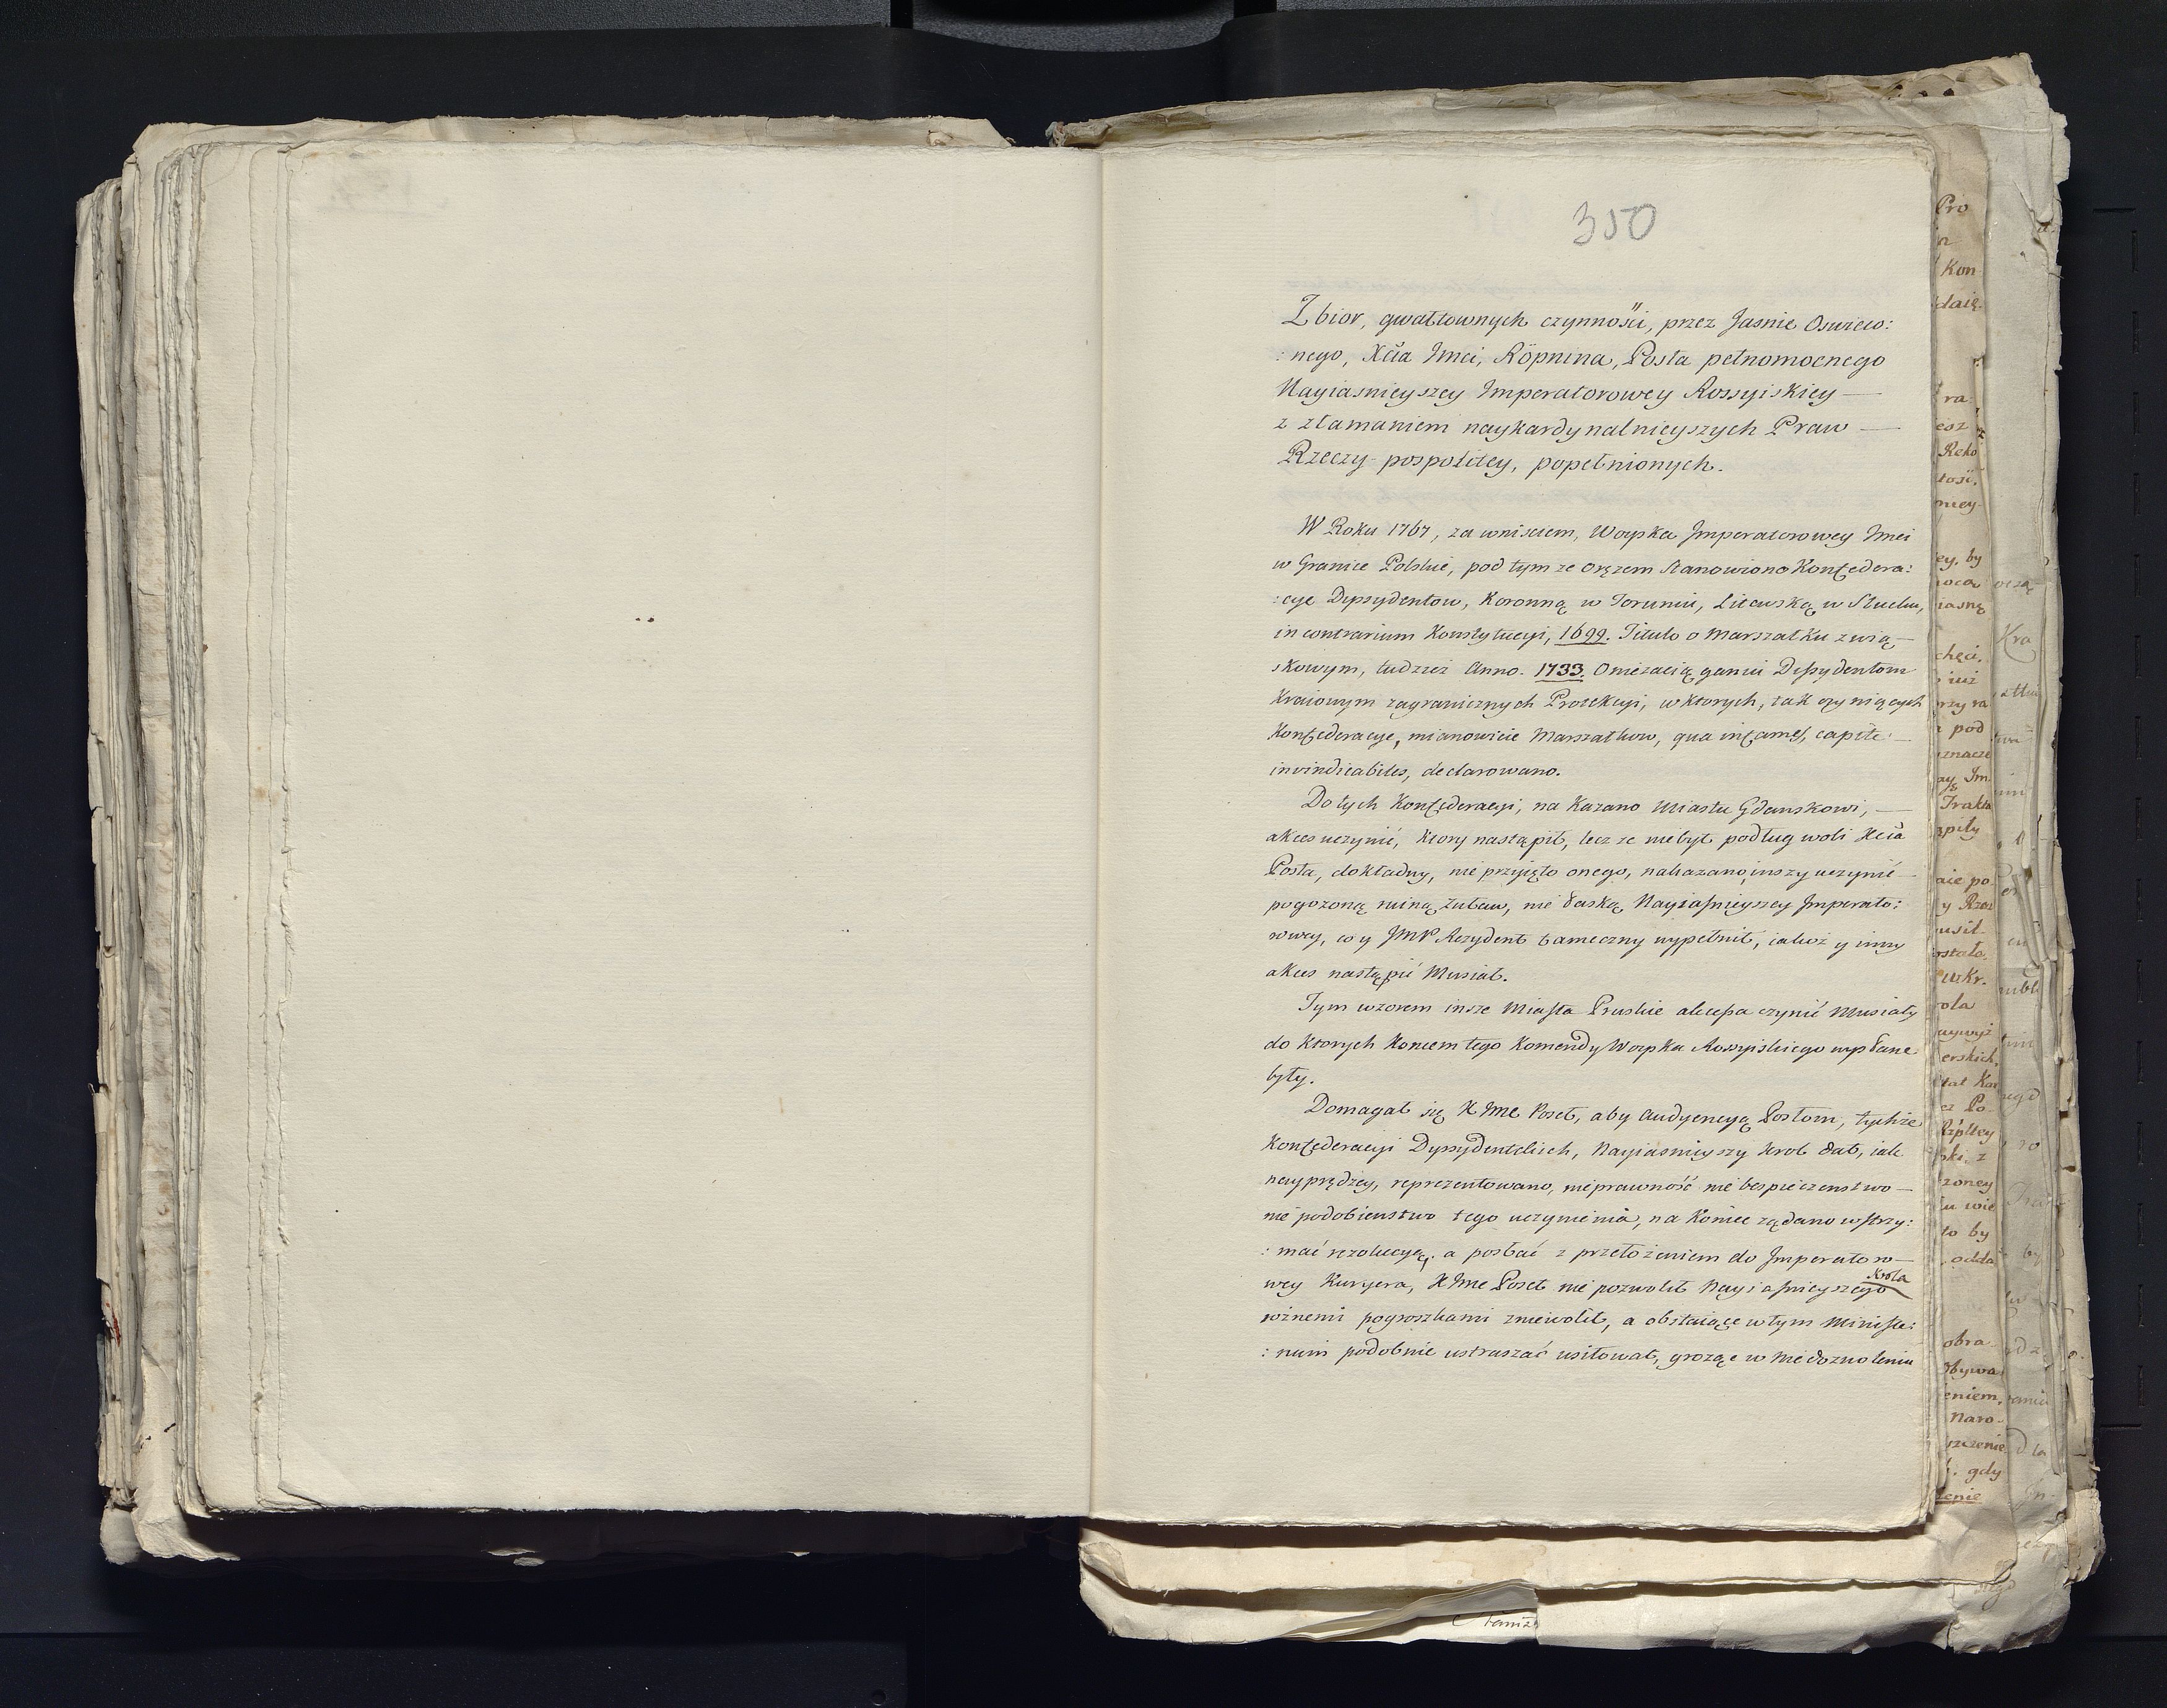 350
Zbior, gwałtownych czynności, przez Jasnie Oswieco:
: nego, Xcia Jmci, Röpnina, Posła pełnomocnego
Nayiasnieyszey Jmperatorowey Rossyiskiey —
z złamaniem naykardynalnieyszych Praw —
Rzeczy-pospolitey, popełnionych.
W Roku 1767, za wnisciem, Woyska Jmperatorowey Jmci
w Granice Polskie, pod tym ze orężem stanowiono Konfedera:
:cye Dyssydentow, Koronną w Toruniu, Litewską w Słucku,
in contrarium Konstytucyi, 1699. Titulo o Marszałku zwią—
skowym, tudzież Anno. 1733. O niezaciąganiu Dyssydentom
Kraiowym zagranicznych Protekcyi, w ktorych, tak czyniących
Konfederacye, mianowicie Marszałkow, qua infames, capite —
invindicabiles, declarowano.
Do tych Konfederacyi, na Kazano Miastu Gdanskowi, —
akces uczynić, ktory nastąpił, lecz ze niebył podług woli Xcia
Posła, dokładny, nie przyięto onego, nakazano inszy uczynić —
pogożoną ruiną Żuław, nie łaską Nayiasnieyszey Jmperato:
rowey, co y JMP Rezydent tameczny wypełnił, iakoż y inny
akces nastąpić Musiał.
Tym wzorem insze Miasta Pruskie akcessa czynić Musiały
do ktorych Koncem tego Komendy Woyska Rossyiskiego wysłane
były.
Domagał się X Jmc Poseł, aby Audyencyą Posłom, tychże
Konfederacyi Dyssydentskich, Nayiasnieyszy Krol dał, iak
nayprędzey, reprezentowano, nieprawność nie bespieczenstwo —
nie podobienstwo tego uczynienia, na Koniec żądano wstrzy:
: mać rezolucyą, a posłać z przełożeniem do Jmperatoro—
wey Kuryera, X Jmc Poseł nie pozwolił Nayiasnieyszego Krola
rożnemi pogroszkami zniewolił, a obstaiące w tym Ministe:
: rium podobnie ustraszać usiłował, grożąc w Niedozwoleniu